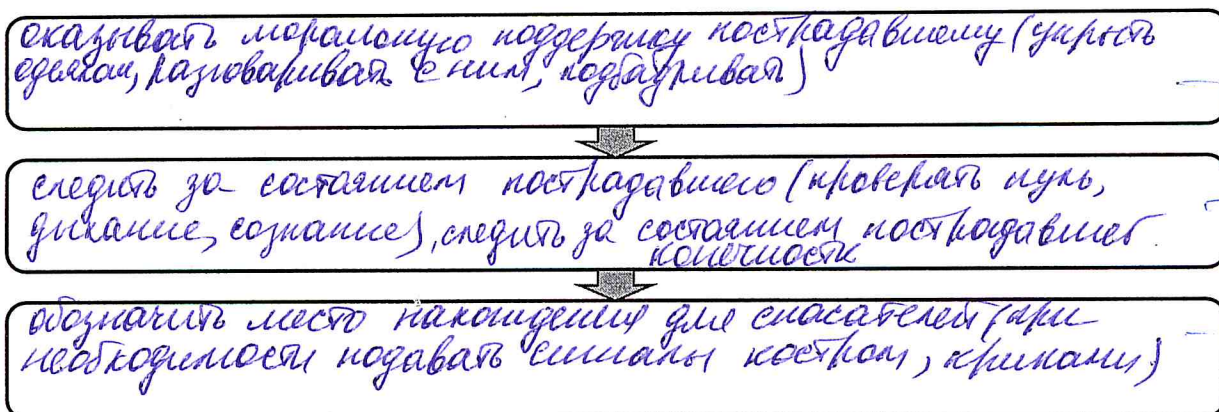 оказывать моральную поддержку пострадавшему (укрыть
одеялом, разговаривать с ним, подбадривать)
следить за состоянием пострадавшего (проверять пульс,
дыхание, сознание), следить за состоянием пострадавшей
конечности
обозначить место нахождения для спасателей (при
необходимости подавать сигналы костром, криками)